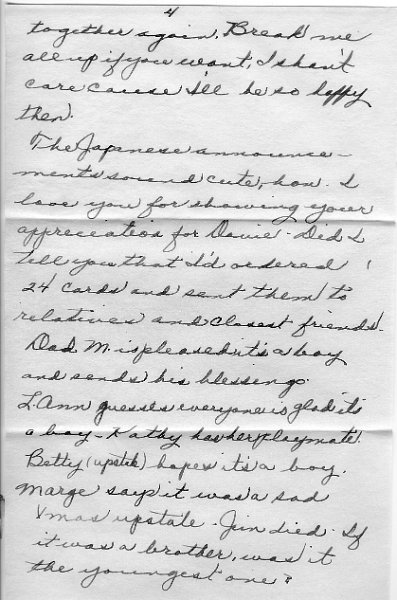 4
together again. Break me
all up if you want, I shan't
care cause I'll be so happy
then.
The Japanese announce-
ments sound cute, hon. I
love you for showing your
appreciation for Davie. Did I
tell you that I'd ordered
24 cards and sent them to
relatives and closest friends.
Dad M. is pleased it's a boy
and sends his blessings.
L. Ann guesses everyone is glad it's
a boy - Kathy has her playmate.
Betty (upstate) hopes it's a boy.
Marge says it was a sad
Xmas upstate. Jim died. If
it was a brother, was it
the youngest one?